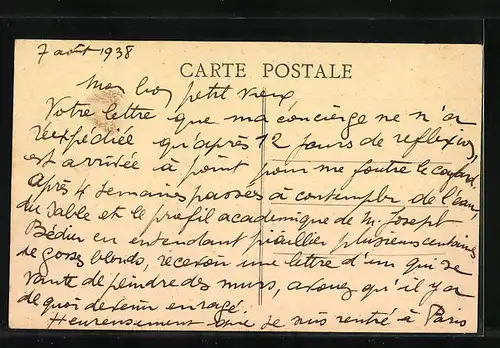 7 août 1938
CARTE POSTALE
Mon bon petit vieux
Votre lettre que ma concierge ne m'a
réexpédiée qu'après 12 jours de reflexion,
est arrivée à point pour me foutre le cafard.
Après 4 semaines passées à contempler de l'eau,
du sable et le profil académique de M. Joseph
Bédier en entendant piailler plusieurs centaines
de gosses blonds, recevoir une lettre d'un qui se
vante de peindre des murs, avouez qu'il y a
de quoi devenir enragé.
Heureusement que je suis rentré à Paris